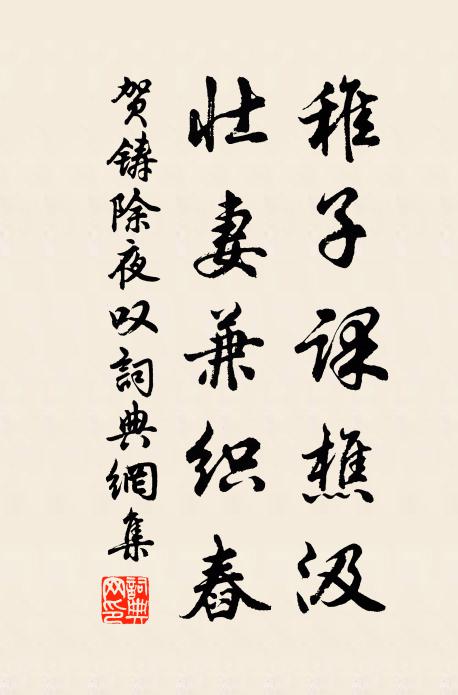 稚子课樵汲
壮妻兼织舂
贺铸除夜叹詞典網集
詞典网印